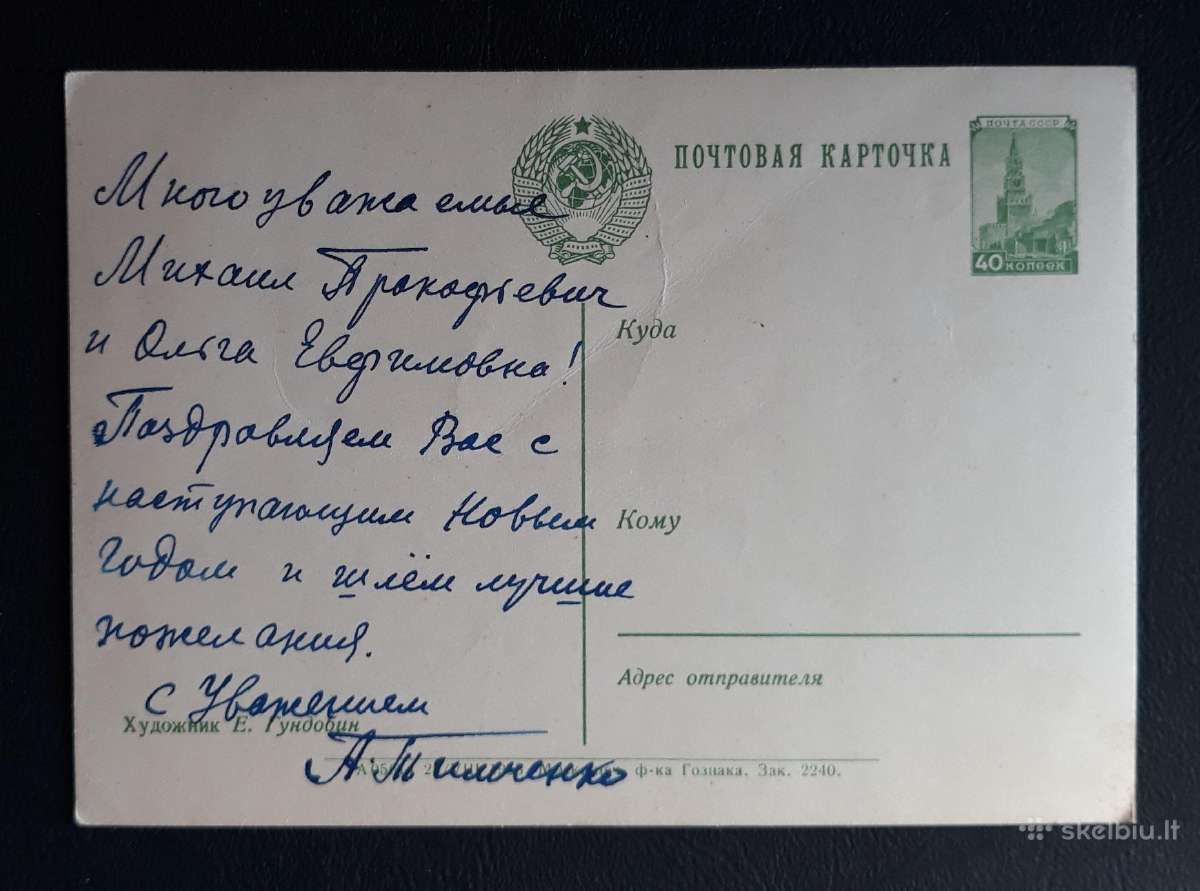 ПОЧТА СССР
40 КОПЕЕК
ПОЧТОВАЯ КАРТОЧКА
Многоуважаемые
Михаил Прокофьевич
и Ольга Евфимовна!
Поздравляем Вас с
наступающим Новым
Годом и шлём лучшие
пожелания.
с Уважением
А. Тимченко
Куда
Кому
Адрес отправителя
Художник Е. Гундобин
ф-ка Гознака. Зак. 2240.
skelbiu.lt